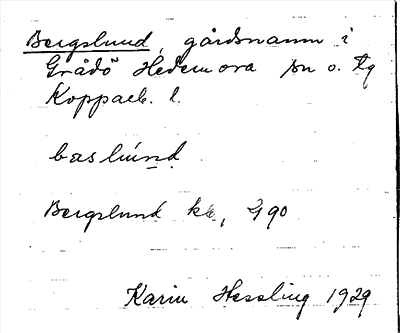 Bergslund, gårdsnamn i
Grådö Hedemora sn o. tg
Kopparb. l.
bæslúnd
Bergslund ka, G 90
Karin Hessling 1929